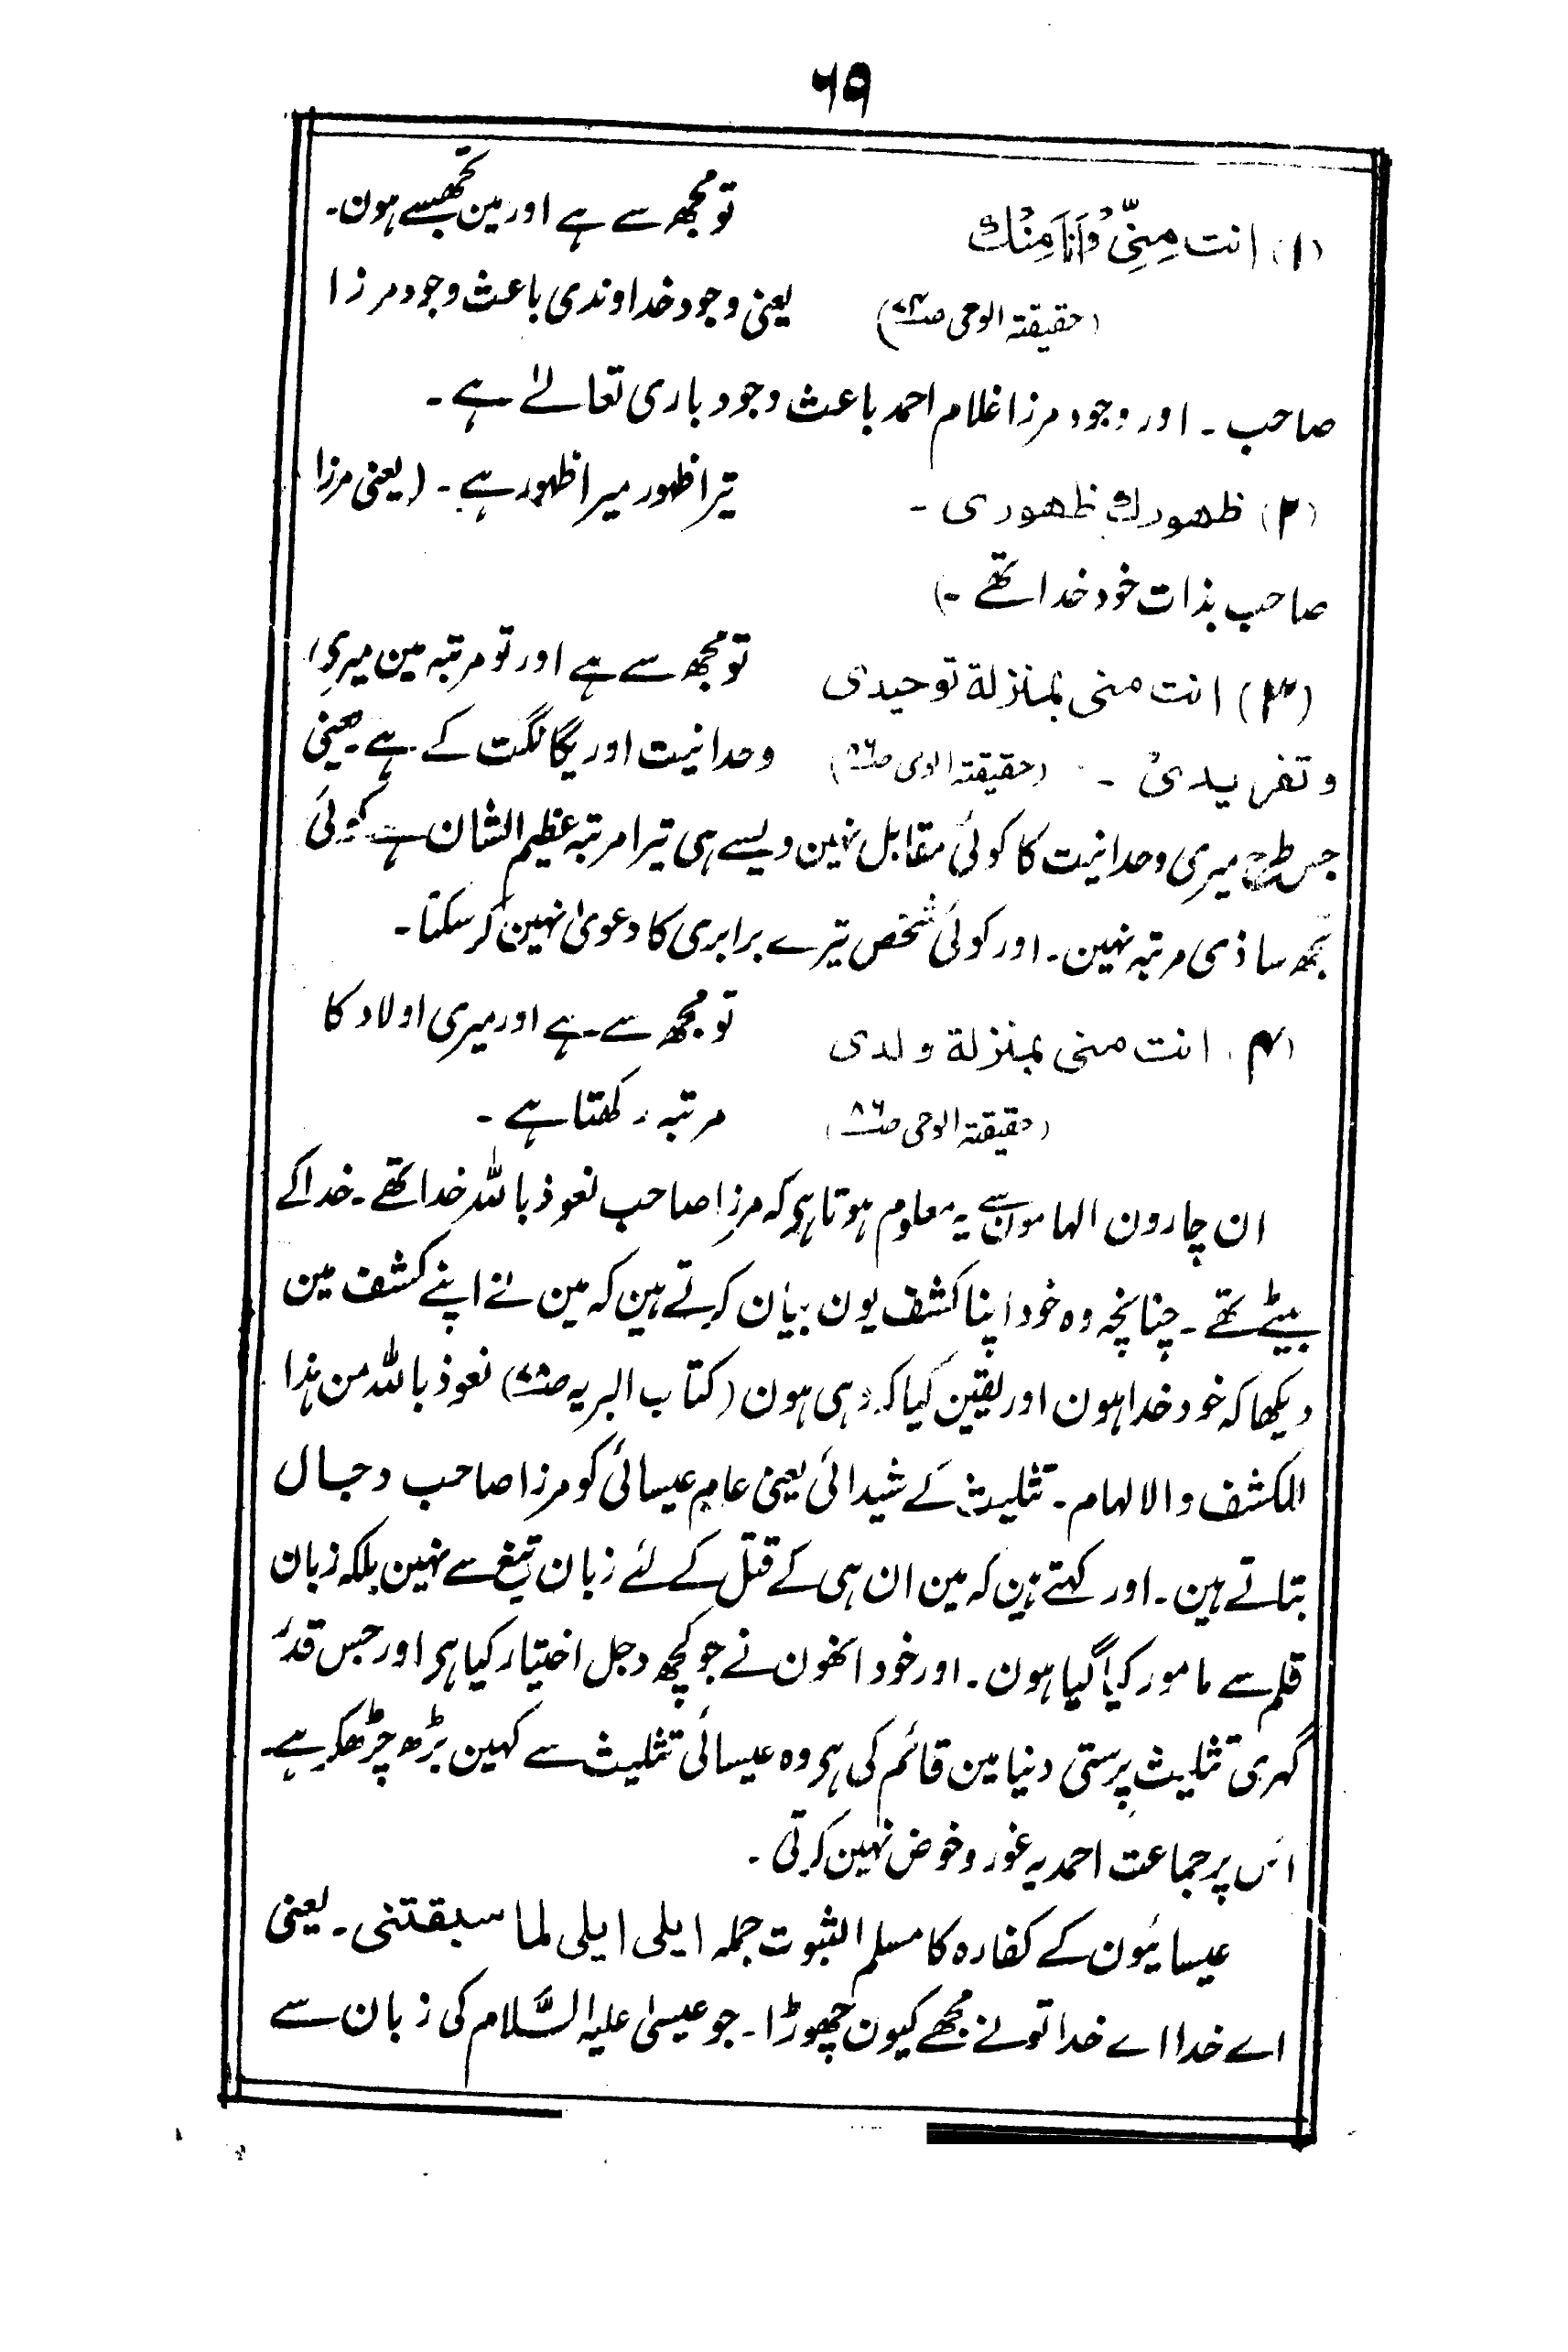 ۶۹
(۱) انت مِنِّیْ وَاَنَا مِنْك تو مجھ سے ہے اور مین تجھسے ہون۔
(حقیقۃ الوحی) یعنی وجود خداوندی باعث وجود مرزا
صاحب۔ اور وجود مرزا غلام احمد باعث وجود باری تعالےٰ ہے۔
(۲) ظھورك ظھوری۔ تیرا ظہور میرا ظہور ہے۔ (یعنی مرزا
صاحب بذات خود خدا تھے۔)
(۳) انت منی بمنزلة توحیدی تو مجھ سے ہے اور تو مرتبہ مین میری
وتفریدی۔ (حقیقۃ الوحی ص۸۶) وحدانیت اور یگانگت کے ہے۔ یعنی
جس طرح میری وحدانیت کا کوئی مقابل نہین ویسے ہی تیرا مرتبہ عظیم الشان ہے کوئی
تجھ سا ذی مرتبہ نہین۔ اور کوئی شخص تیرے برابری کا دعویٰ نہین کر سکتا۔
(۴) انت منی بمنزلة ولدی تو مجھ سے ہے اور میری اولاد کا
(حقیقۃ الوحی ص۸۶) مرتبہ رکھتا ہے۔
ان چارون الہامون سے یہ معلوم ہوتا ہی کہ مرزا صاحب نعوذ باللہ خدا تھے۔ خدا کے
بیٹے تھے۔ چنانچہ وہ خود اپنا کشف یون بیان کرتے ہین کہ مین نے اپنے کشف مین
دیکھا کہ خود خدا ہون اور یقین کیا کہ وہی ہون (کتاب البریہ ص۷۸) نعوذ باللہ من ہذا
الکشف والالہام۔ تثلیث کے شیدائی یعنی عام عیسائی کو مرزا صاحب دجال
بتاتے ہین۔ اور کہتے ہین کہ مین ان ہی کے قتل کے لئے زبان تیغ سے نہین بلکہ زبان
قلم سے مامور کیا گیا ہون۔ اور خود انھون نے جو کچھ دجل اختیار کیا ہی اور جس قدر
گہری تثلیث پرستی دنیا مین قائم کی ہی وہ عیسائی تثلیث سے کہین بڑھ چڑھکر ہے۔
اس پر جماعت احمدیہ غور و خوض نہین کرتی۔
عیسائیون کے کفارہ کا مسلم الثبوت جملہ ایلی ایلی لما سبقتنی۔ یعنی
اے خدا اے خدا تونے مجھے کیون چھوڑا۔ جو عیسیٰ علیہ السَّلام کی زبان سے